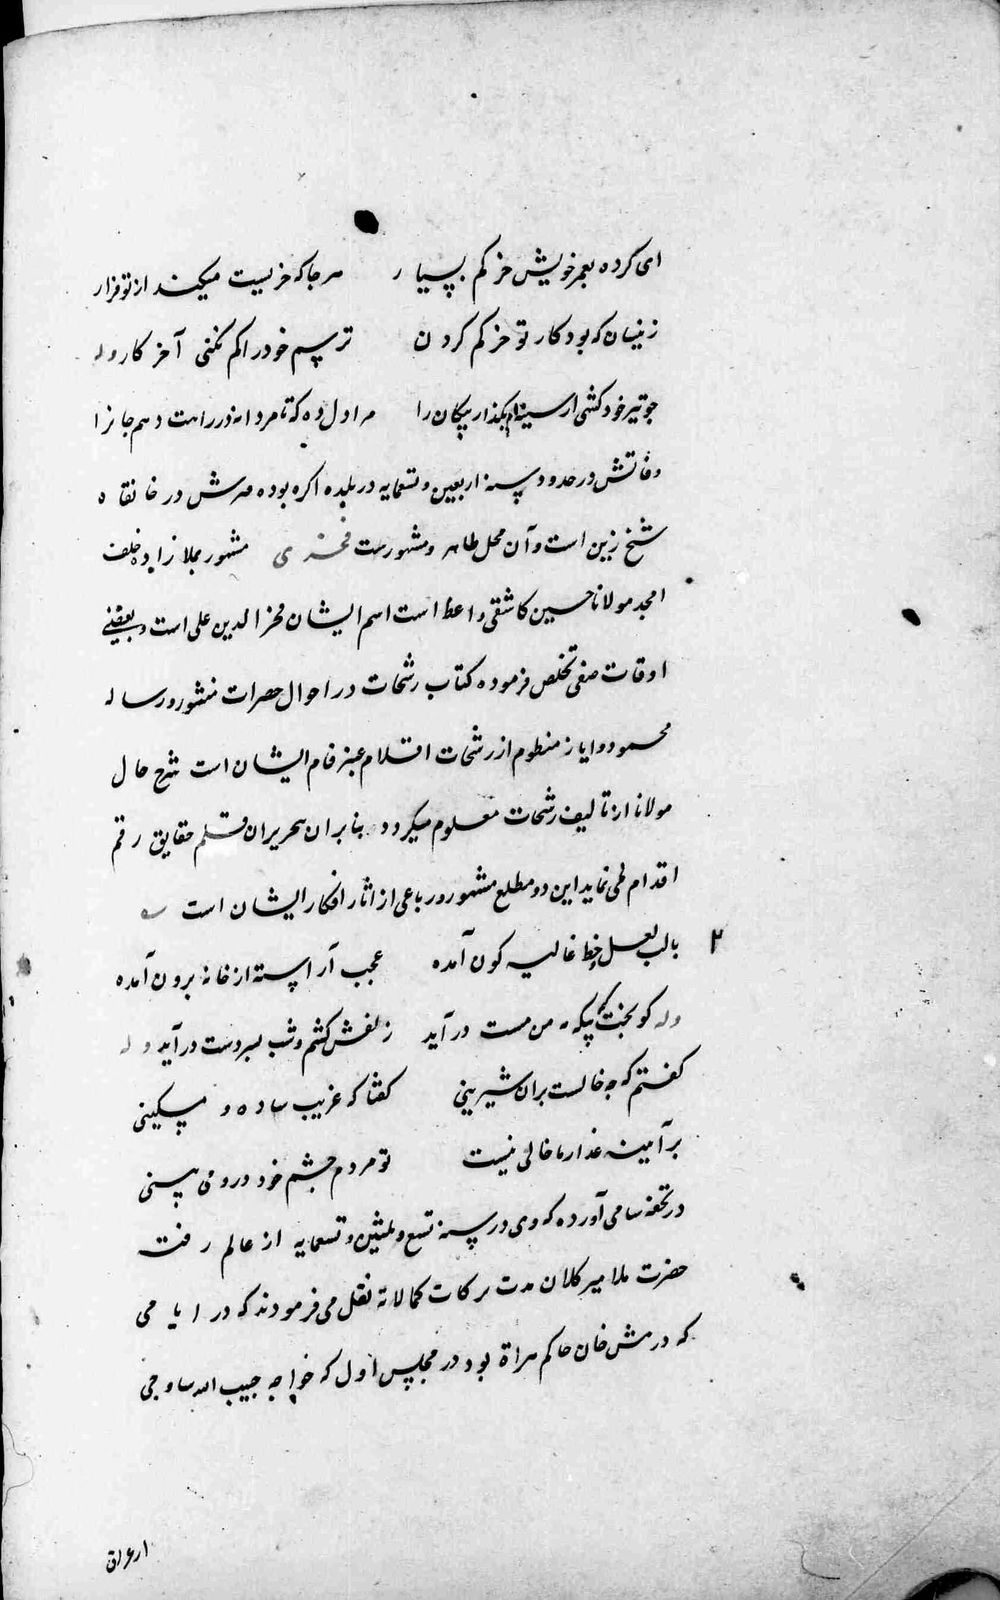 ای کرده بعمر خویش خر کم بسیار هر جا که خریست میکند از تو فرار
زینسان که بود کار تو خر کم کردن ترسم خود را کم نکنی آخر کار وله
چو تیر خود کشی از سینه ام بکذار پیکان را مرا دل ده که تا مردانه در راهت دهم جانرا
وفاتش در حدود سنه اربعین و تسعمایه در بلده اکره بوده قبرش در خانقاه
شیخ زین است و آن محل ظاهر و مشهورست فخری مشهور بملا زاده خلف
امجد مولانا حسین کاشفی واعظ است اسم ایشان فخر الدین علی است و بعضی
اوقات صفی تخلص فرموده کتاب رشحات در احوال حضرات منثور و رساله
محمود و ایاز منظوم از رشحات اقلام عنبر فام ایشان است شرح حال
مولانا از تالیف رشحات معلوم میکردد بنابران بتحریر ان قلم حقایق رقم
اقدام نمی نماید این دو مطلع مشهور و رباعی از اثار افکار ایشان است
۲ بالب لعل و خط غالیه کون آمده عجب آراسته از خانه برون آمده
وله کو بخت که یکه من مست در آید زلفش کشم و شب بسر دست در آید وله
کفتم که چه خالست بران شیرینی کفتا که غریب ساده و مسکینی
بر آینه عذار ما خالی نیست تو مردم چشم خود درو می بینی
در تحفه سامی آورده که وی در سنه تسع و ثلثین و تسعمایه از عالم رفت
حضرت ملا میر کلان مدت برکات کمالاته نقل می فرمودند که در ایامی
که درمش خان حاکم هراة بود در مجلس اول که خواجه حبیب الله ساوجی
از عراق